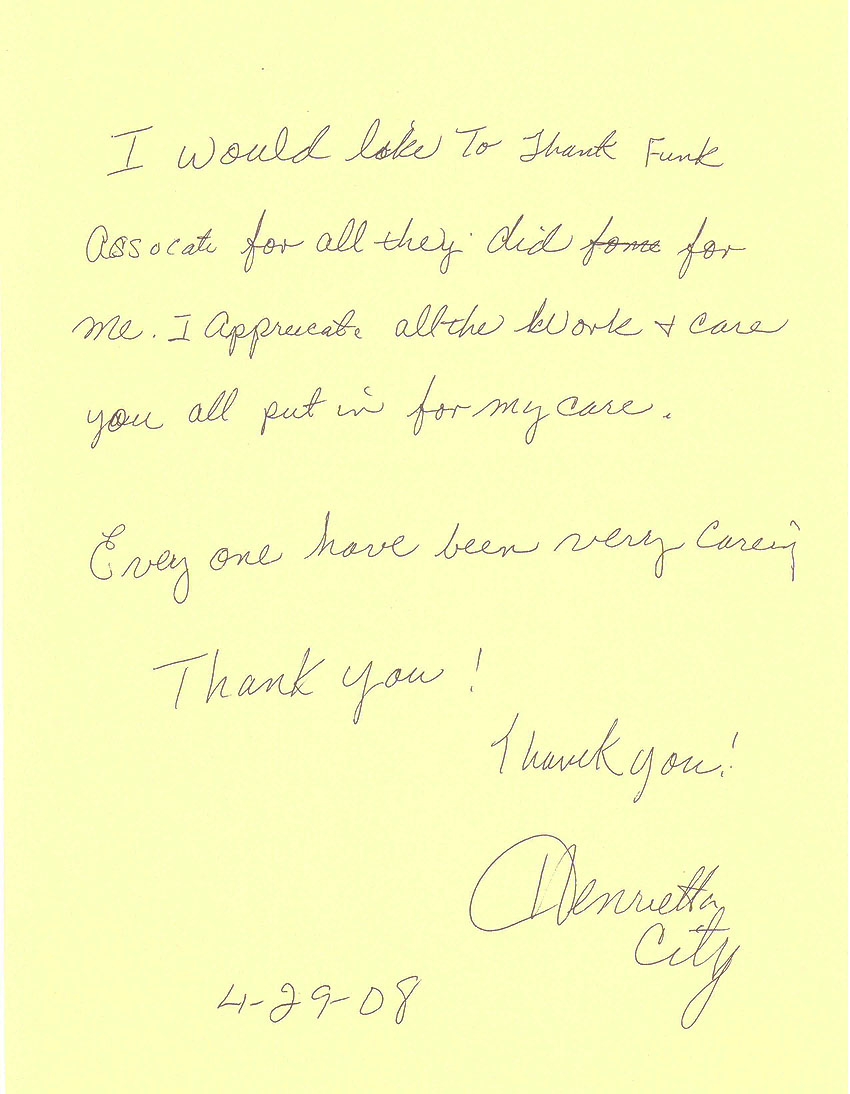 I would like To Thank Funk
Assocate for all they did fome for
me. I Appreecate all the Work + care
you all put in for my care.
Evey one have been very Careing
Thank you!
Thank you!
Henrietta
City
4-29-08